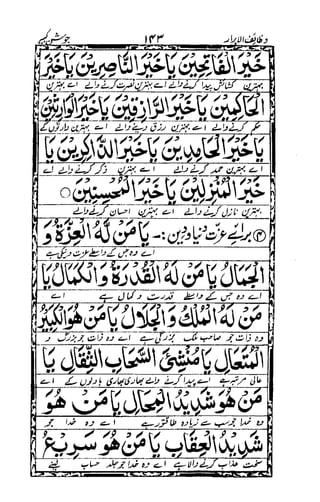 وظائف الابرار ۱۴۳ جوشن کبیر
خَيْرَ الْفَاتِحِيْنَ يَا خَيْرَ النَّاصِرِيْنَ يَا خَيْرَ
بہترین کشائش پیدا کرنے والے اے بہترین نصرت کرنے والے اے بہترین
الْحَاكِمِيْنَ يَا خَيْرَ الرَّازِقِيْنَ يَا خَيْرَ الْوَارِثِيْنَ
حکم کرنے والے اے بہترین رزق دینے والے اے بہترین وارثوں کے
يَا خَيْرَ الْحَامِدِيْنَ يَا خَيْرَ الذَّاكِرِيْنَ يَا
اے بہترین حمد کرنے والے اے بہترین ذکر کرنے والے اے
خَيْرَ الْمُنْزِلِيْنَ يَا خَيْرَ الْمُحْسِنِيْنَ ○
بہترین نازل کرنے والے اے بہترین احسان کرنے والے
برائے عزت دنیا و دین :- يَا مَنْ لَهُ الْعِزَّةُ وَ
اے وہ جس کے واسطے عزت و
الْجَمَالُ يَا مَنْ لَهُ الْقُدْرَةُ وَ الْكَمَالُ يَا
اے وہ جس کے واسطے قدرت و کمال ہے اے
مَنْ لَهُ الْمُلْكُ وَ الْجَلَالُ يَا مَنْ هُوَ الْكَبِيْرُ
وہ ذات جو صاحب ملک و بزرگی ہے اے وہ ذات جو بزرگ و
الْمُتَعَالِ يَا مُنْشِئَ السَّحَابِ الثِّقَالِ يَا
عالی مرتبہ ہے اے پیدا کرنے والے بھاری بھاری بادلوں کے اے
مَنْ هُوَ شَدِيْدُ الْمِحَالِ يَا مَنْ هُوَ
وہ خدا جو سب سے زیادہ طاقتور ہے اے وہ خدا جو
شَدِيْدُ الْعِقَابِ يَا مَنْ هُوَ سَرِيْعُ
سخت عذاب کرنے والا ہے اے وہ خدا جو جلد حساب لینے